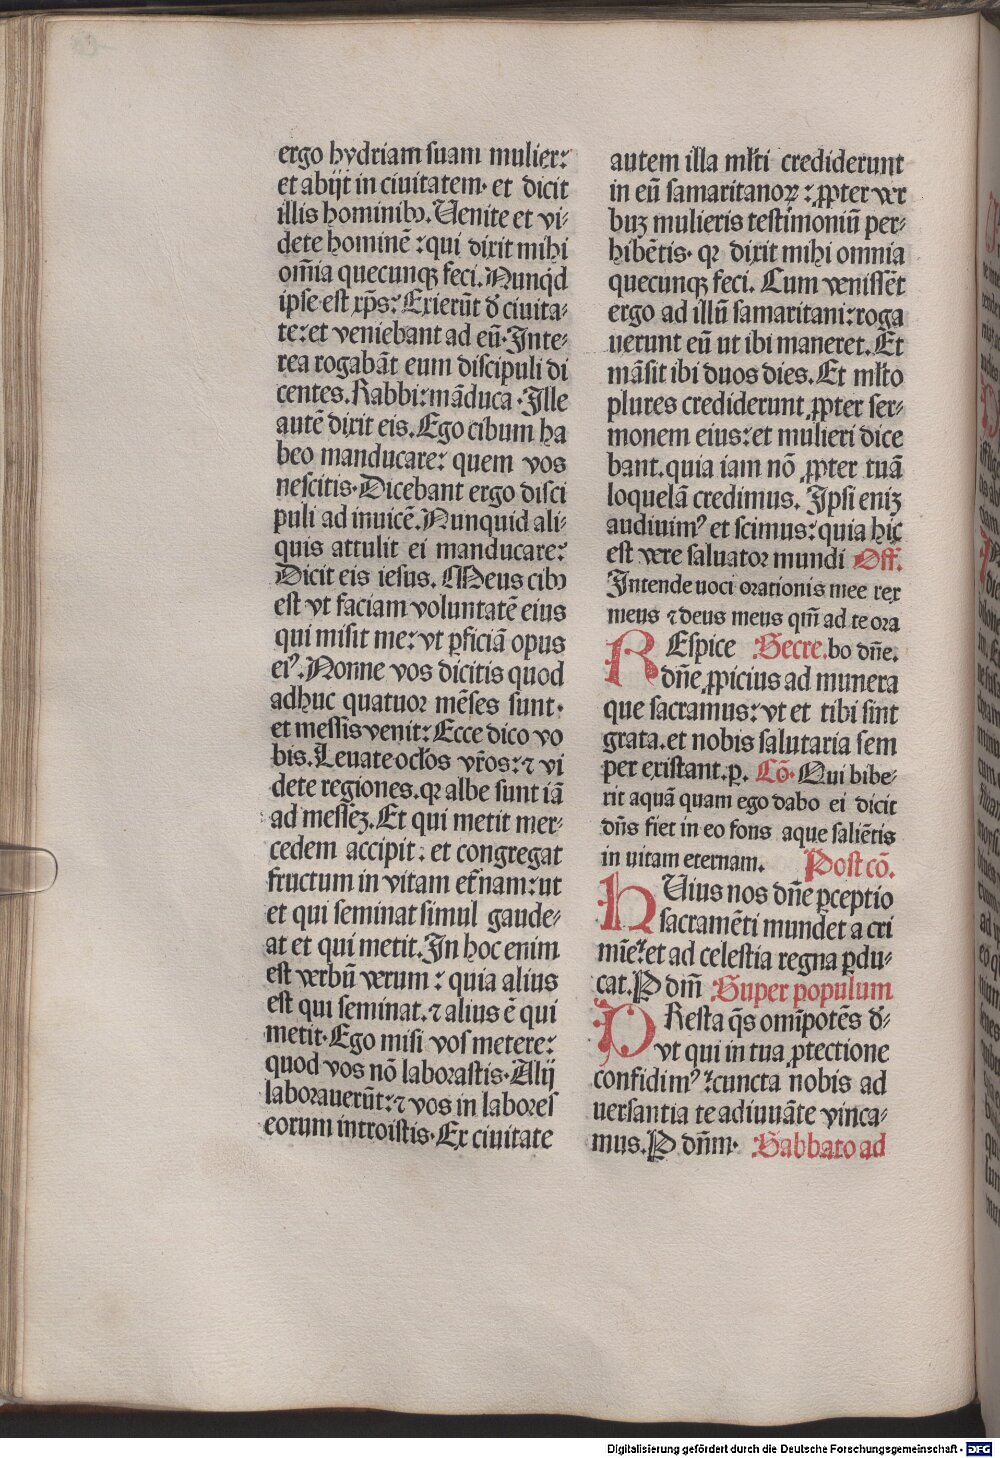 ergo hydriam suam mulier:
et abijt in ciuitatem· et dicit
illis hominibꝰ. Uenite et vi-
dete hominē : qui dixit mihi
om̄ia quecunqꝫ feci. Nunqͥd
ipse est xp̄s: Exierūt d̓ ciuita-
te: et veniebant ad eū· Inte-
rea rogabāt eum discipuli di
centes. Rabbi: māduca · Ille
autē dixit eis. Ego cibum ha
beo manducare: quem vos
nescitis· Dicebant ergo disci
puli ad inuicē. Nunquid ali-
quis attulit ei manducare:
Dicit eis iesus. Meus cibꝰ
est vt faciam voluntatē eius
qui misit me: vt ꝑficiā opus
eiꝰ. Nonne vos dicitis quod
adhuc quatuor mēses sunt·
et messis venit: Ecce dico vo
bis. Leuate ocl̓os vr̄os: ⁊ vi
dete regiones. qꝛ albe sunt iā
ad messeꝫ. Et qui metit mer-
cedem accipit: et congregat
fructum in vitam et̄nam: ut
et qui seminat simul gaude-
at et qui metit. In hoc enim
est verbū verum : quia alius
est qui seminat. ⁊ alius ē qui
metit· Ego misi vos metere:
quod vos nō laborastis· Alij
laborauerūt: ⁊ vos in labores
eorum introistis· Ex ciuitate
autem illa ml̓ti crediderunt
in eū samaritanoꝝ : ꝓpter ver
buꝫ mulieris testimoniū per-
hibētis· qꝛ dixit mihi omnia
quecunqꝫ feci. Cum venissēt
ergo ad illū samaritani: roga
uerunt eū ut ibi maneret. Et
māsit ibi duos dies. Et ml̓to
plures crediderunt ꝓpter ser-
monem eius: et mulieri dice
bant. quia iam nō ꝓpter tuā
loquelā credimus. Ipsi eniꝫ
audiuimꝰ et scimus: quia hic
est vere saluator mundi Off̄.
Intende uoci orationis mee rex
meus ⁊ deus meus qm̄ ad te ora
REspice Secre. bo dn̄e.
dn̄e ꝓpicius ad munera
que sacramus: vt et tibi sint
grata. et nobis salutaria sem
per existant. ꝑ. Cō· Qui bibe-
rit aquā quam ego dabo ei dicit
dn̄s fiet in eo fons aque saliētis
in uitam eternam. Post cō.
hUius nos dn̄e ꝑceptio
sacramēti mundet a cri
mīe: et ad celestia regna ꝑdu-
cat. P dm̄ Super populum
PResta qs̄ om̄ipotēs d̓-
vt qui in tua ꝓtectione
confidimꝰ : cuncta nobis ad
uersantia te adiuuāte vinca-
mus. P dn̄m· Sabbato ad
Digitalisierung gefördert durch die Deutsche Forschungsgemeinschaft - DFG